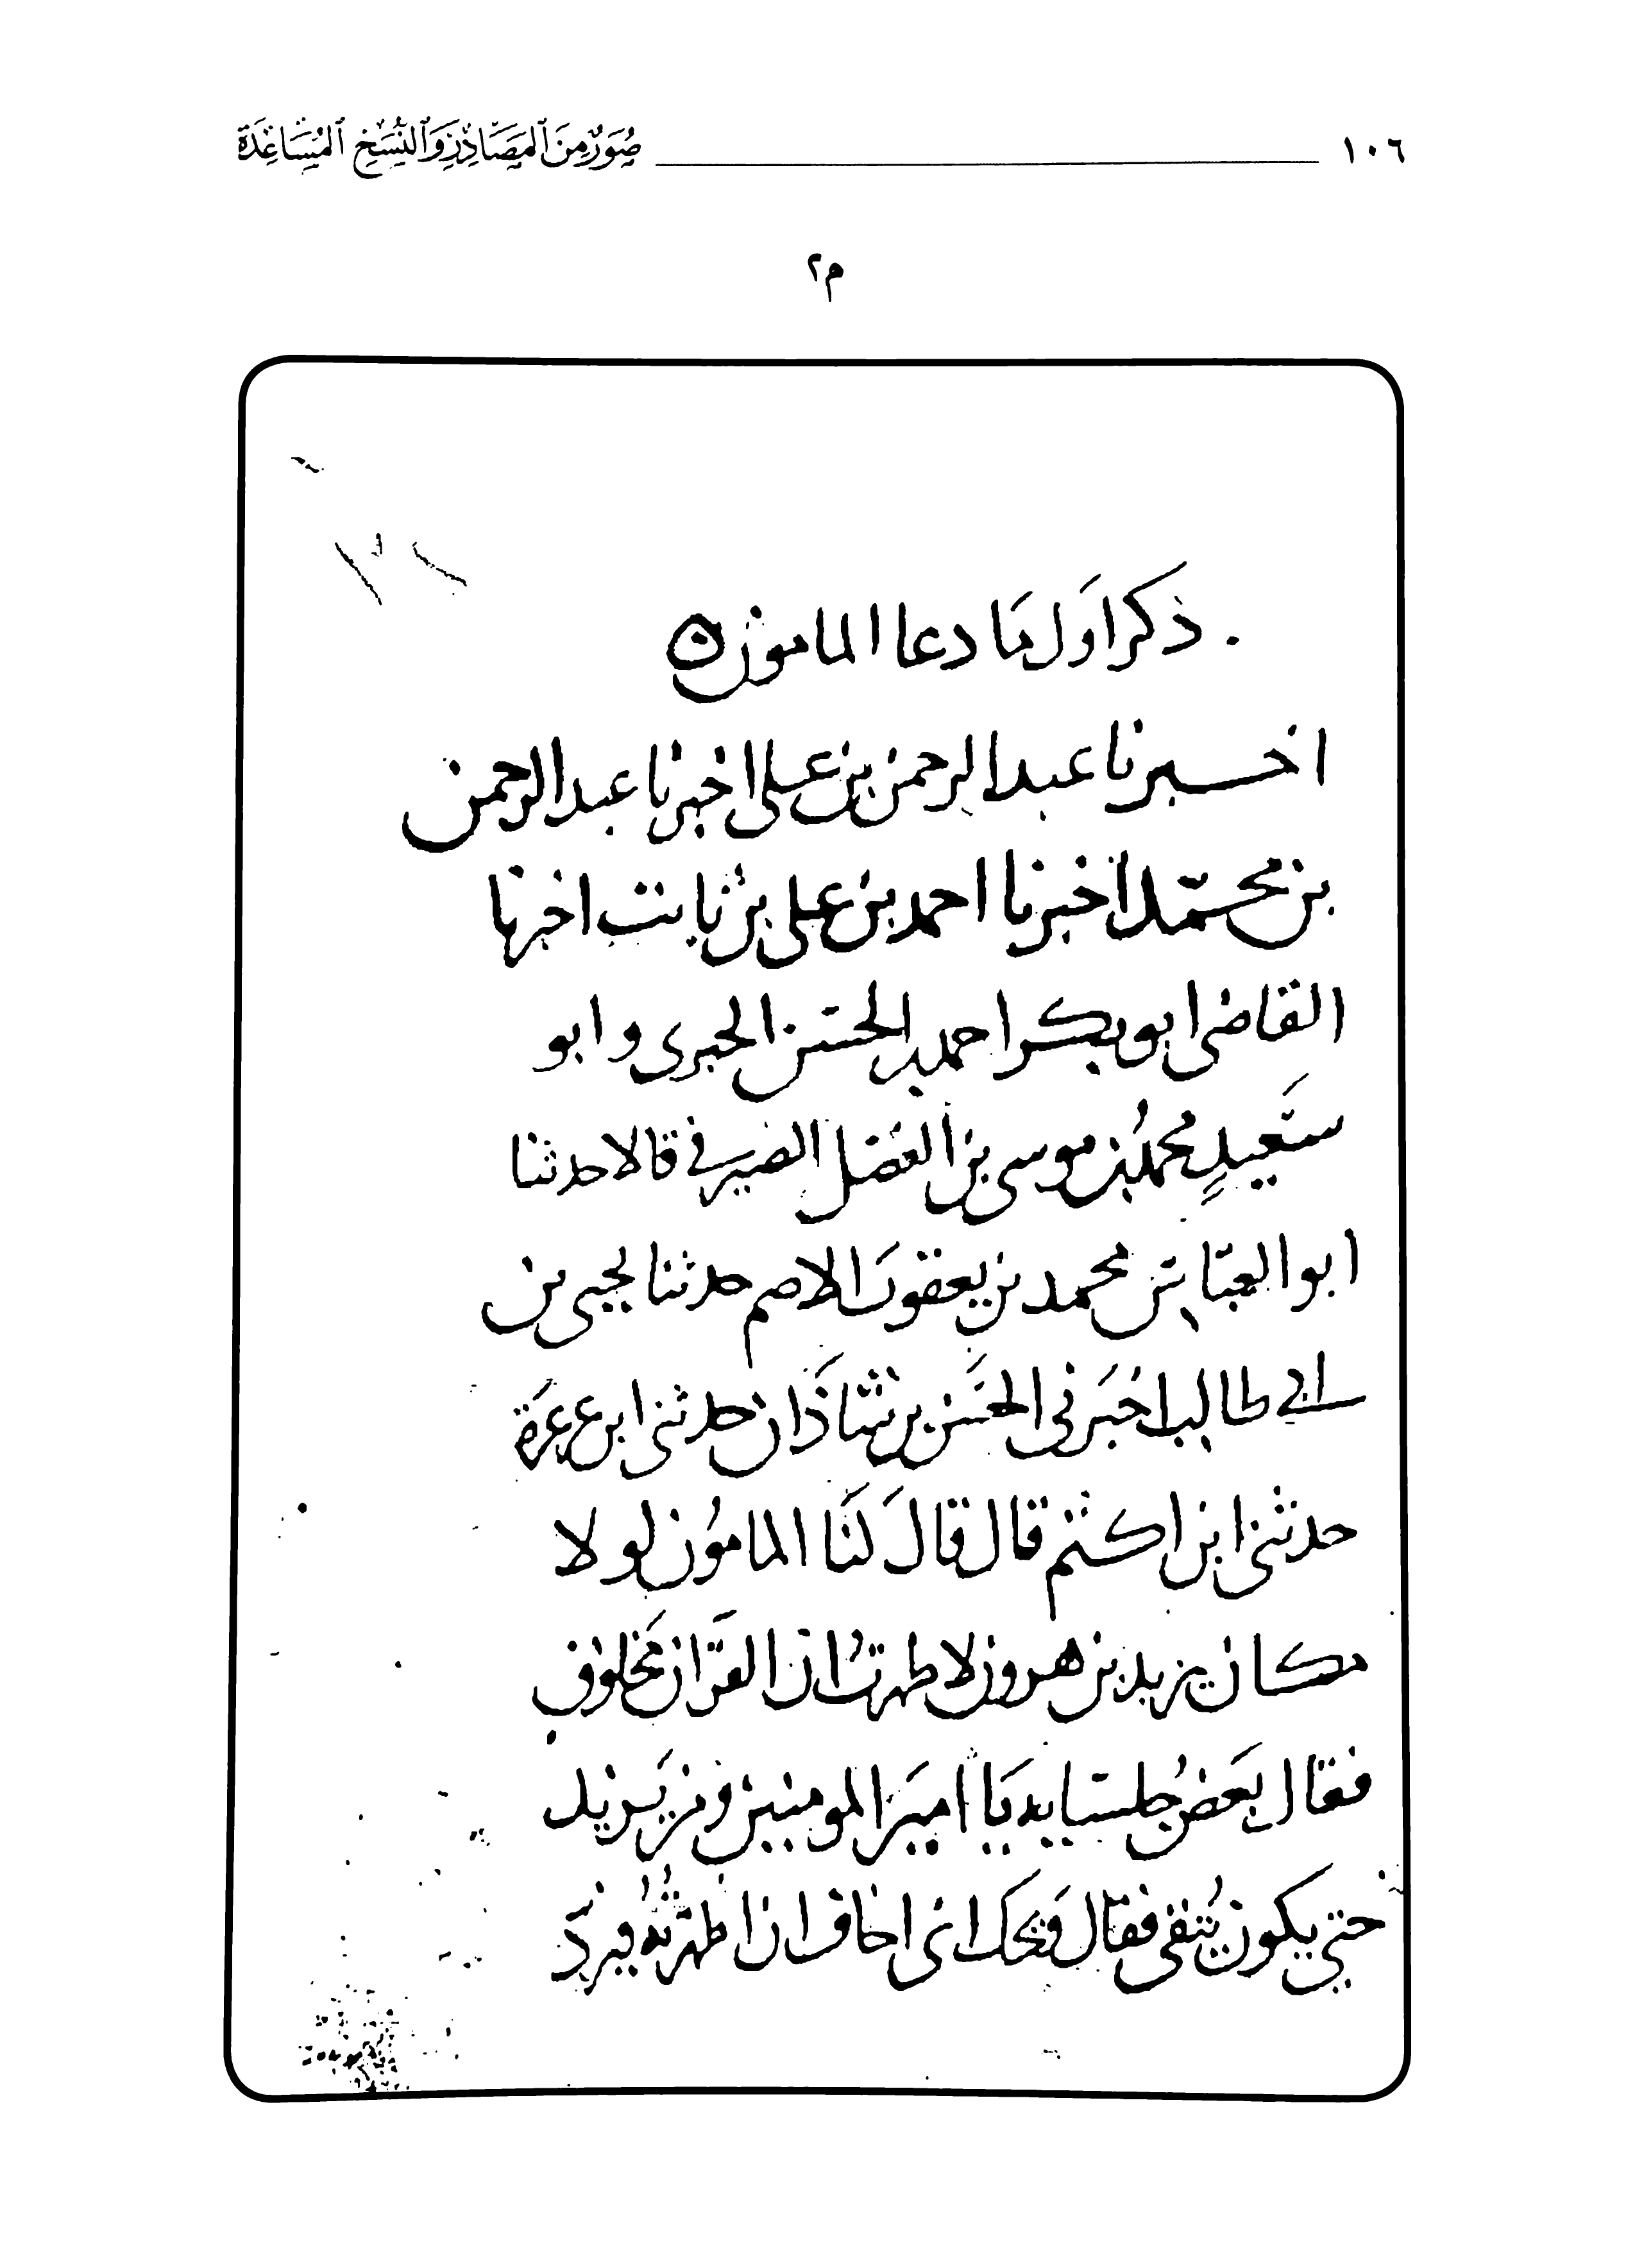 ١٠٦ صُوَرٌ مِنَ ٱلمَصَادِرِ وَٱلنُّسَخِ ٱلمُسَاعِدَة
م٢
ذكر اول مَا دعا المامون ٥
اخـبرنا عبد الرحمن بن علي اخبرنا عبد الرحمن
بن محمّد اخبرنا احمد بن علي بن ثابت اخبرنا
القاضي ابو بكر احمد بن الحسن الحيرى وابو
سَعيدٍ محمد بن موسى بن الفضل الصيرفي قالا حدثنا
ابو العبّاس محمد بن يعقوب الاصم حدثنا يحيى بن
ابي طالب اخبَرني الحسَن بن شاذَان حدثني ابن عرعرة
حدثني ابن اكثم قال قالَ لنَا المامُون لولا
مكان يزيد بن هرون لاظهرتُ ان القرّان مَخلوق
فقال بعَض جُلسايه يَا اميرَ المومنين ومن يَزيد
حتى يكون يُتقى فقال وَيحَك اني اخاف ان اظهرتُهُ فيردّ